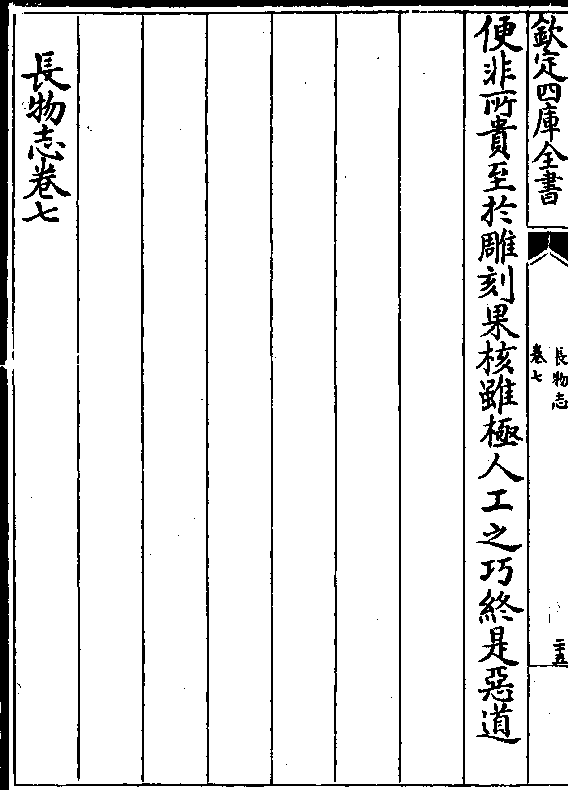 欽定四庫全書
長物志
卷七
二十五
便非所貴至於雕刻果核雖極人工之巧終是惡道
長物志卷七